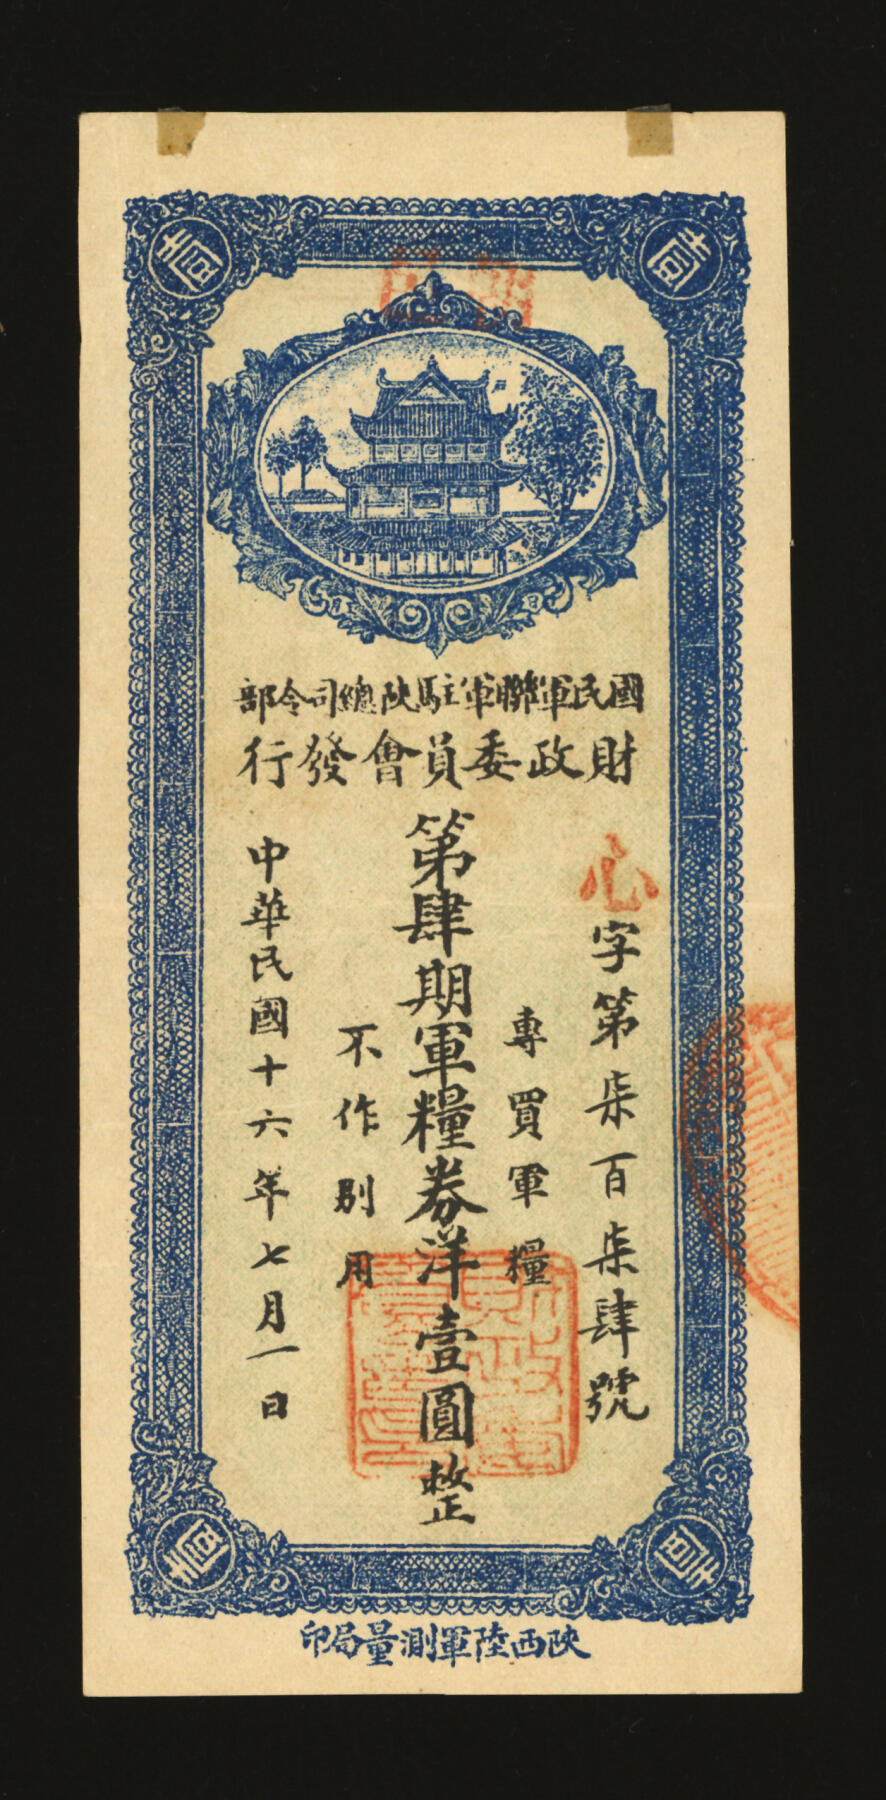 壹圓
壹圓
國民軍聯軍駐陝總司令部
財政委員會發行
心字第柒百柒肆號
專買軍糧
第肆期軍糧券洋壹圓整
不作別用
中華民國十六年七月一日
壹圓
壹圓
陝西陸軍測量局印